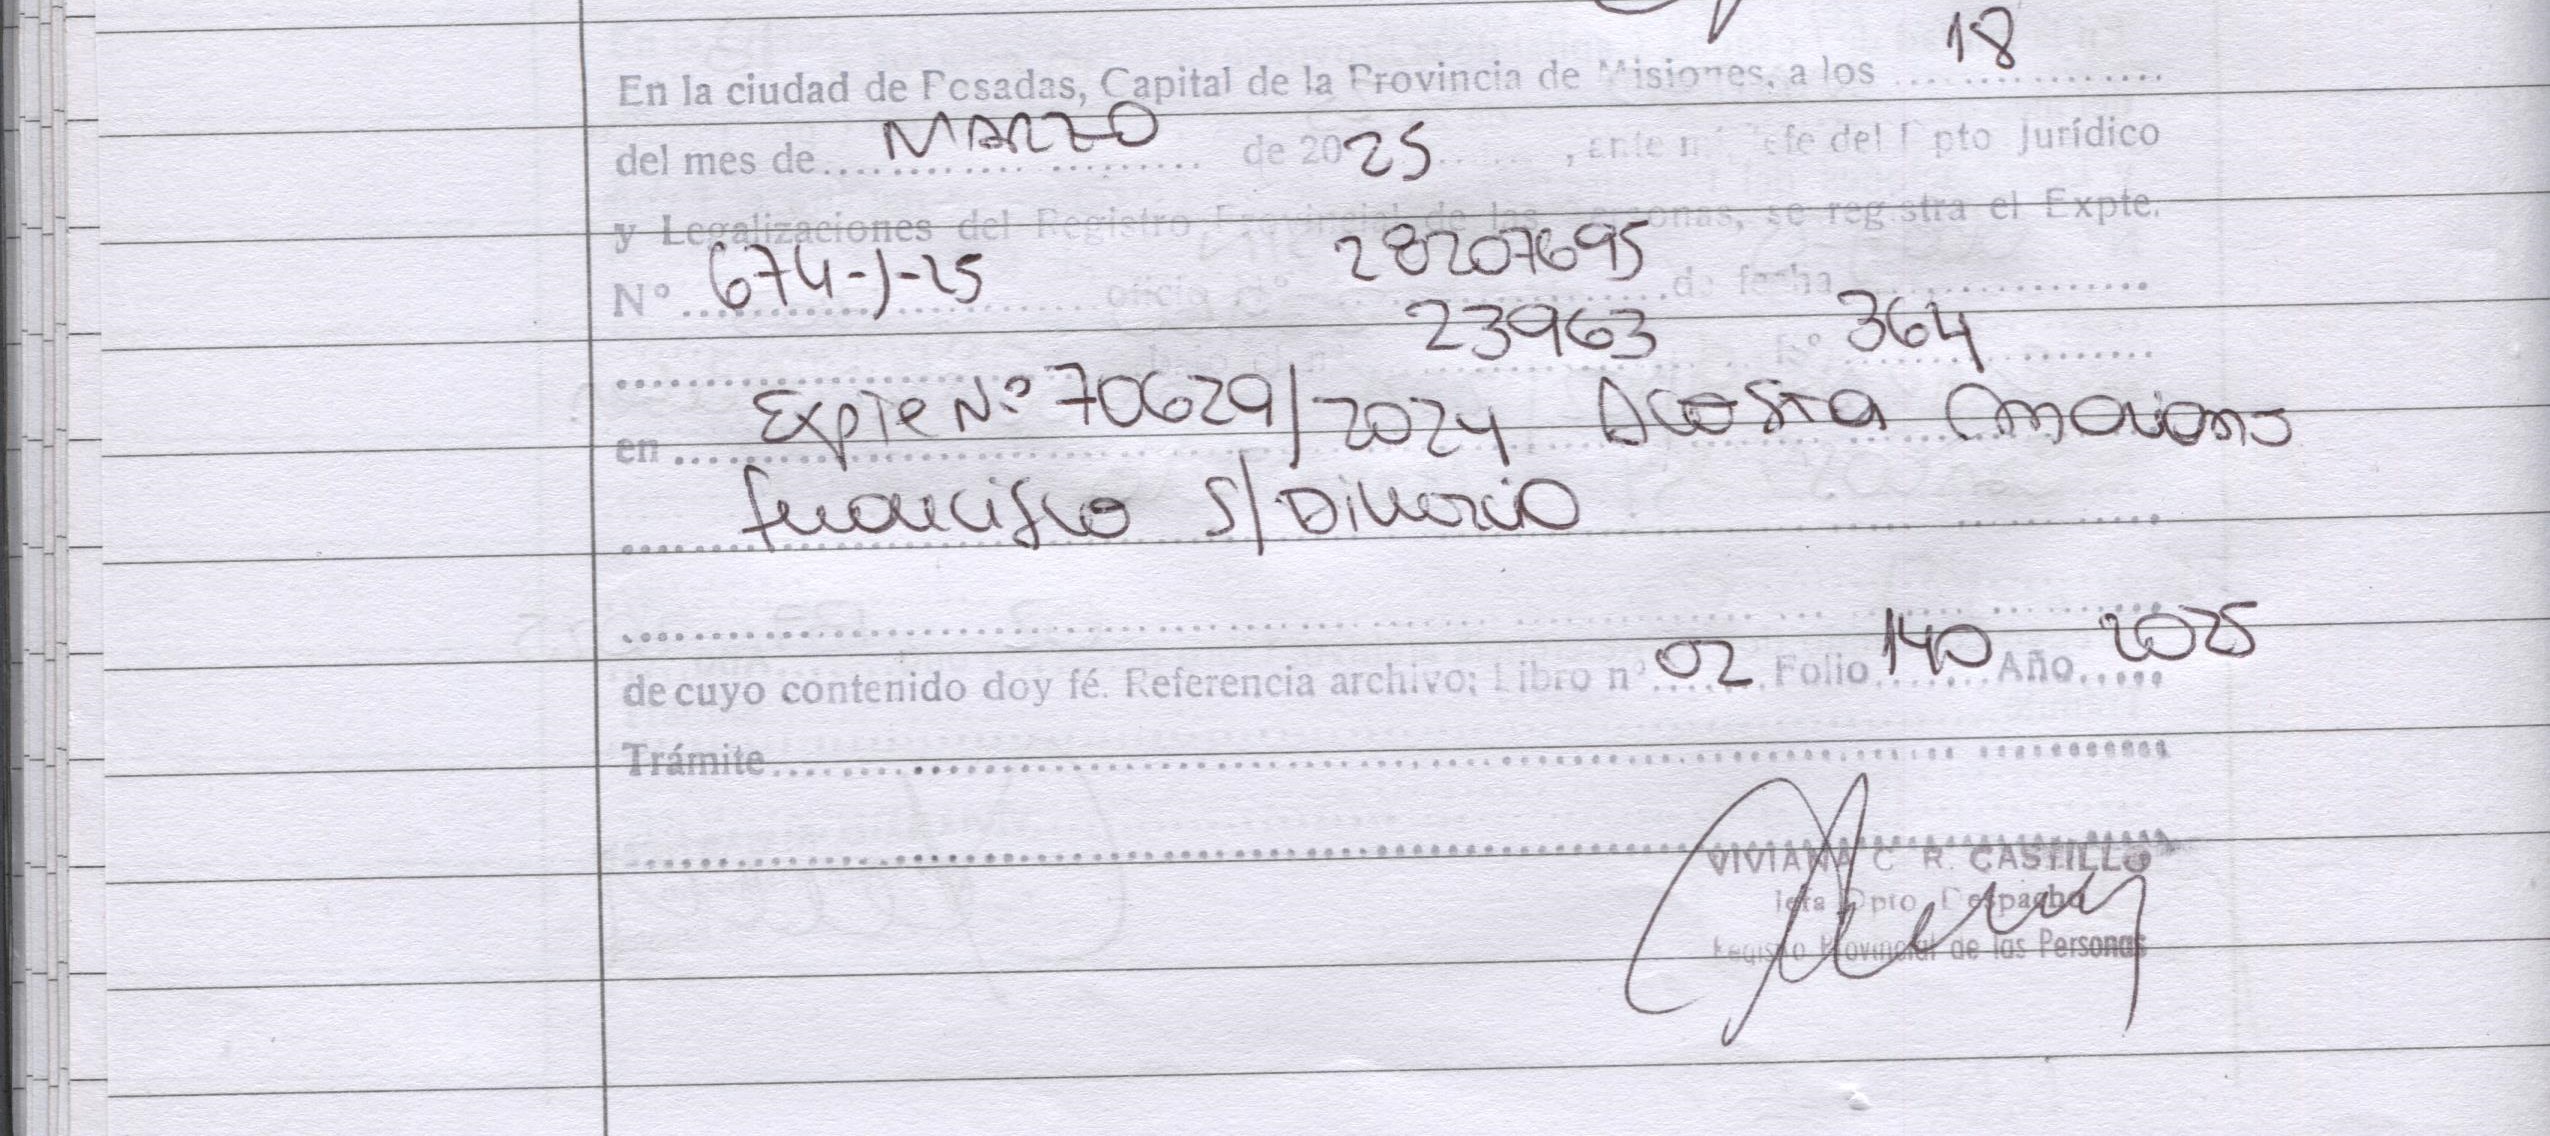 18
En la ciudad de Posadas, Capital de la Provincia de Misiones, a los
del mes de MARZO de 2025, ante mí Jefe del Dpto Jurídico
y Legalizaciones del Registro Provincial de las Personas, se registra el Expte.
N° 674-J-25 oficio n° 28207695 de fecha
23963 N° 364
en Expte N° 70629/2024 Acosta Mariano
Francisco S/Divorcio
de cuyo contenido doy fé. Referencia archivo: Libro n° 02 Folio 140 Año 2025
Trámite
VIVIANA C. R. CASTILLO
Jefa Dpto. Despacho
Registro Provincial de las Personas